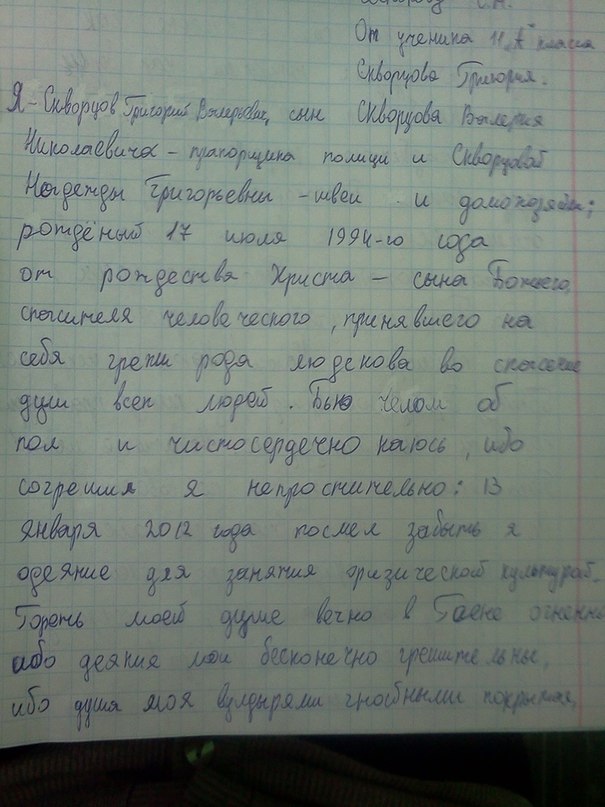 С.А.
От ученика 11 „А" класса
Скворцова Григория.
Я - Скворцов Григорий Валерьевич, сын Скворцова Валерия
Николаевича - прапорщика полиции и Скворцовой
Надежды Григорьевны - швеи и домохозяйки;
рождёный 17 июля 1994-го года
от рождества Христа - сына Божьего,
спасителя человеческого, принявшего на
себя грехи рода людскова во спасение
душ всех людей. Бью челом об
пол и чистосердечно каюсь, ибо
согрешил я непростительно: 13
января 2012 года посмел забыть я
одеяние для занятия физической культурой.
Гореть моей душе вечно в Гаене огненной
ибо деяния мои бесконечно грешительны,
ибо душа моя вулдырями гнобными покрытая,